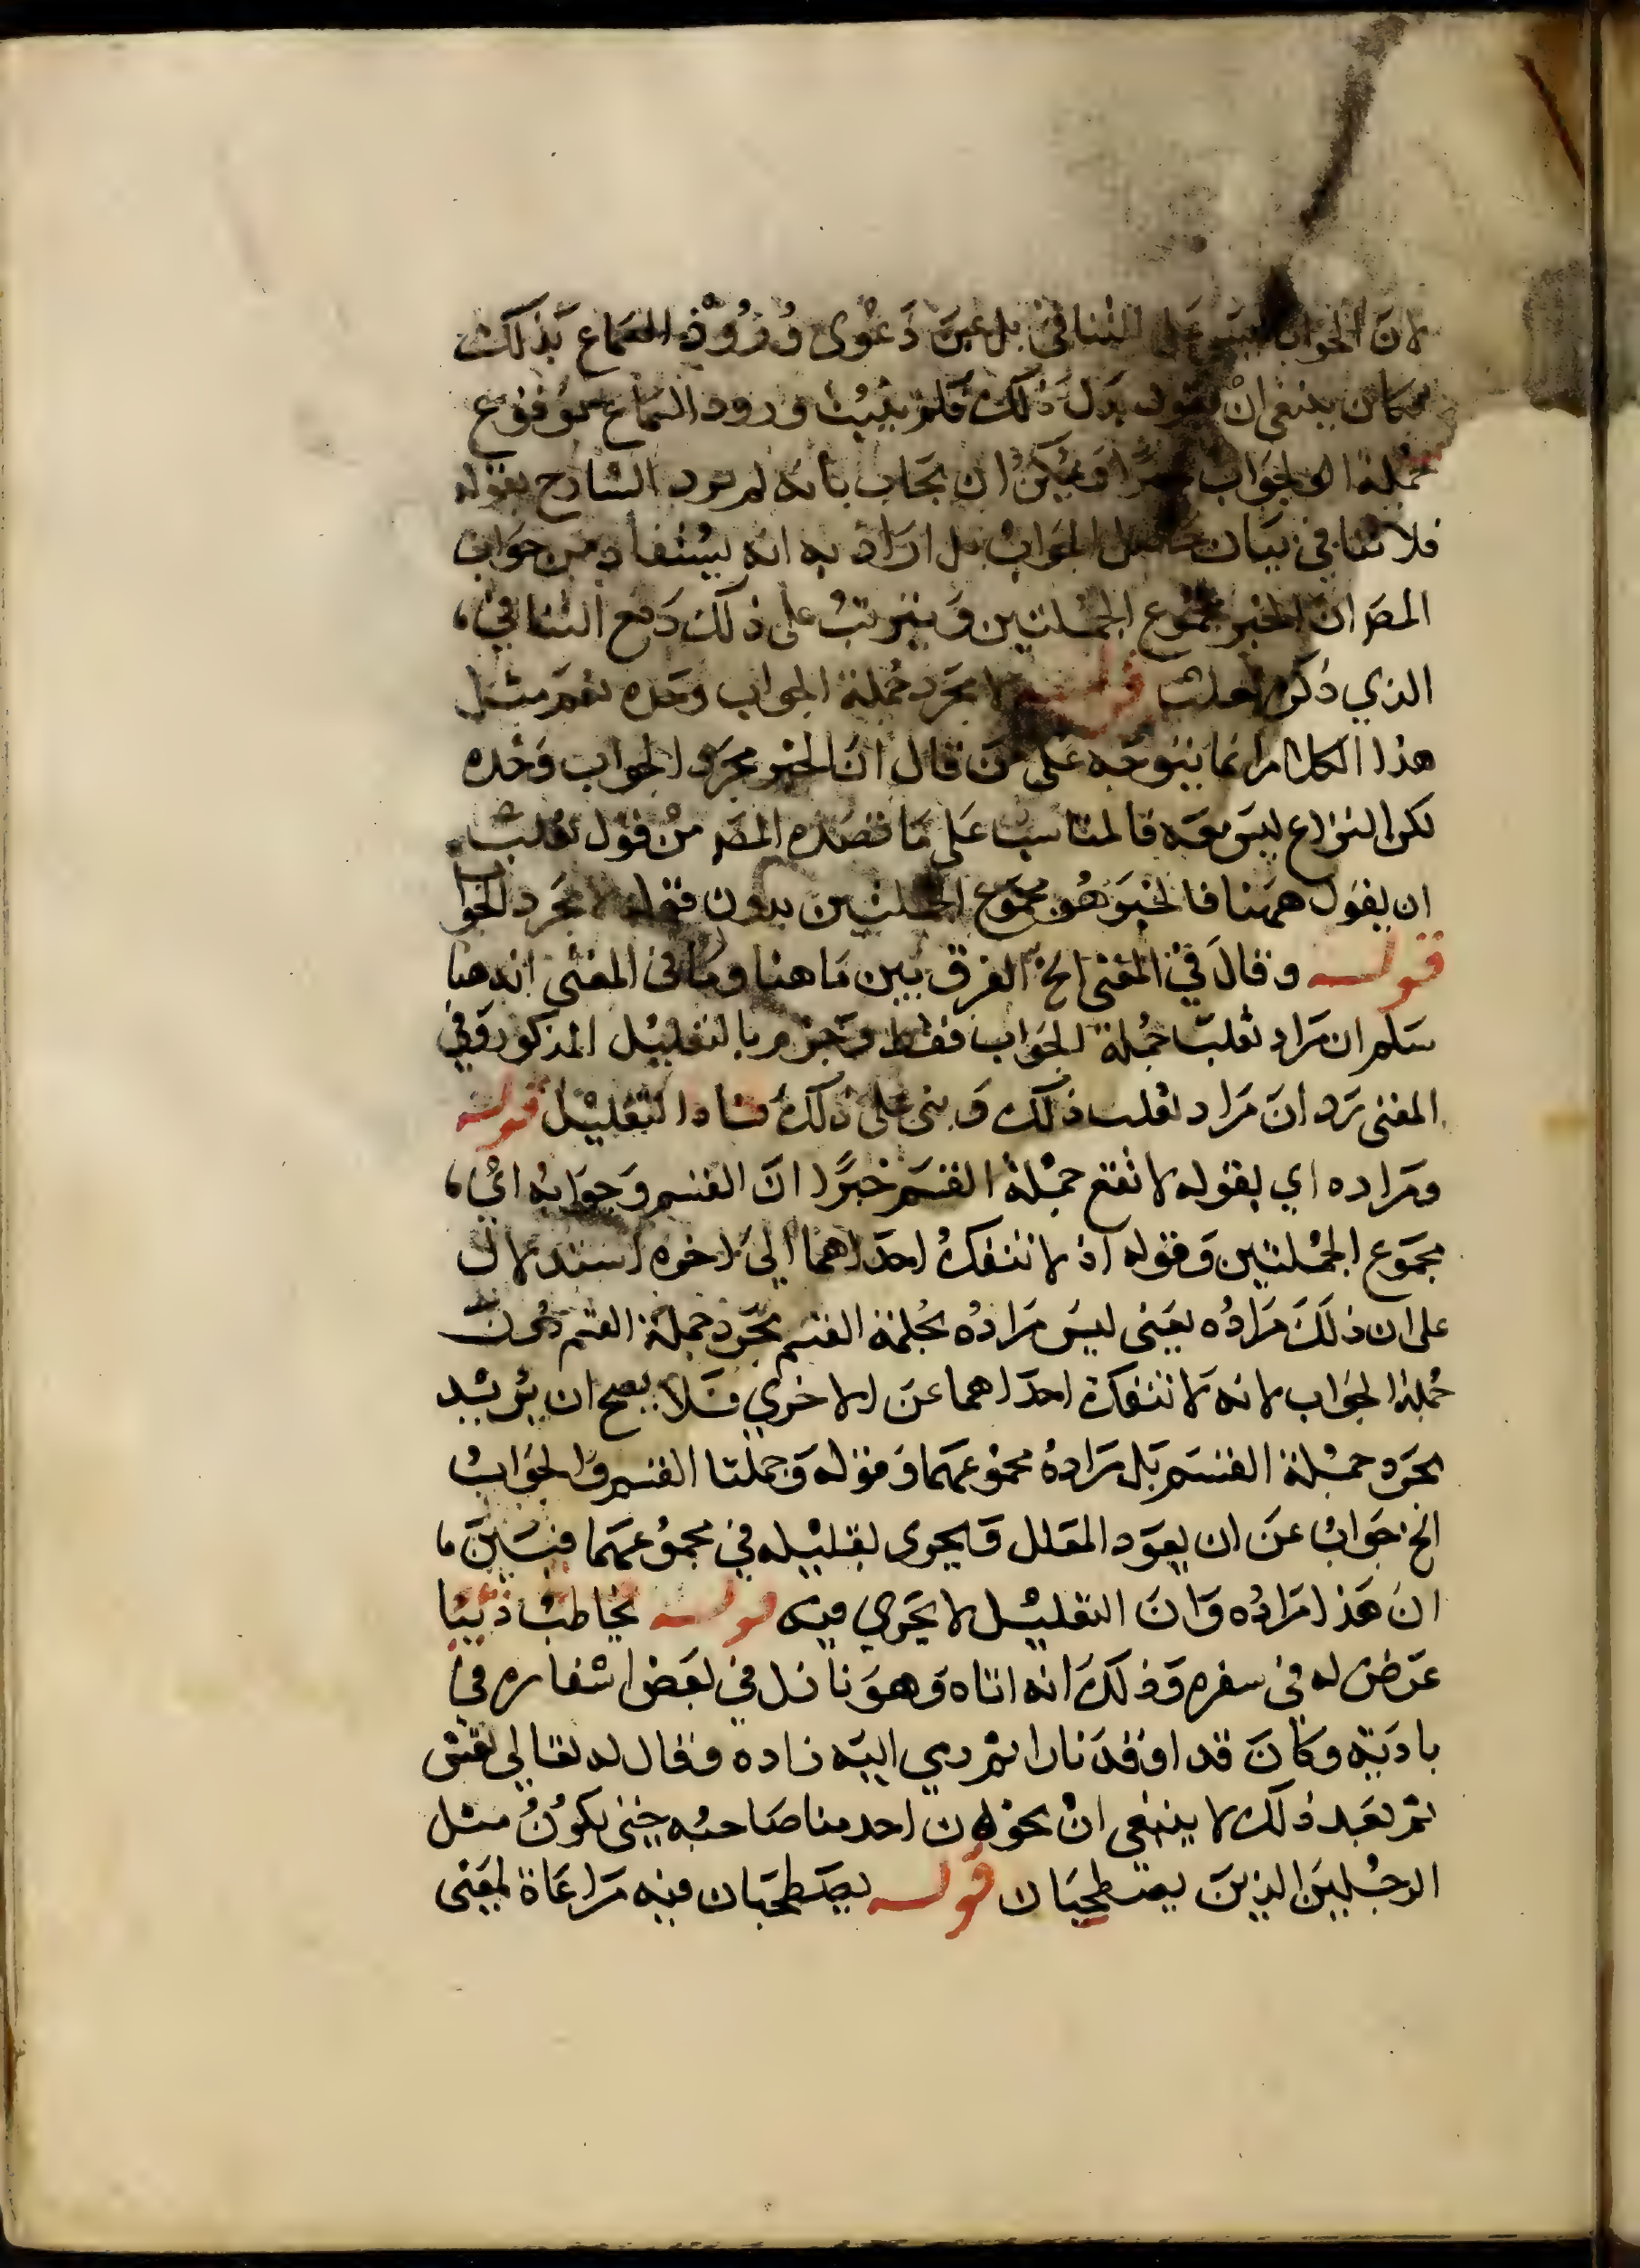 لان الجواب ليس على التنافي بل عن دعوى ورود السماع بذلك
فكان ينبغي ان يقول بدل ذلك فلم يثبت ورود السماع بوقوع
جملة الجواب خبرا ويمكن ان يجاب بانه لم يرد الشارح بقوله
فلا تنافي بيان حاصل الجواب بل اراد به انه يستفاد من جواب
المصر ان الخبر مجموع الجملتين ويترتب على ذلك دفع التنافي،
الذي ذكره ثعلب قوله لا مجرد جملة الجواب وحده نعم مثل
هذا الكلام انما يتوجه على من قال ان الخبر مجرد الجواب وحده
لكن النزاع ليس معه فالمناسب على ما قصده المصر من قول ثعلب
ان يقول ههنا فالخبر هو مجموع الجملتين بدون قوله لا مجرد الجوا
قوله وقال في المغني الخ الفرق بين ما هنا وما في المغني انه هنا
سلم ان مراد ثعلب جملة الجواب فقط وجزم بالتعليل المذكور وفي
المغني رد ان مراد ثعلب ذلك وبنى على ذلك فساد التعليل قوله
ومراده اي بقوله لا تقع جملة القسم خبرا ان القسم وجوابه اي،
مجموع الجملتين وقوله اذ لا تنفك احداهما الى اخره استدلال
على ان ذلك مراده يعني ليس مراده بجملة القسم مجرد جملة القسم دون
جملة الجواب لانه لا تنفك احداهما عن الاخري فلا يصح ان يريد
مجرد جملة القسم بل مراده مجموعهما وقوله وجملتا القسم والجواب
الخ جواب عن ان يعود المعلل ويجري تعليله في مجموعهما فبين ما
ان هذا مراده وان التعليل لا يجري فيه قوله يخاطب ذئبا
عرض له في سفره وذلك انه اتاه وهو نازل في بعض اسفاره في
بادية وكان قد اوقد نارا ثم رمي اليه زاده وقال له تعالي تعش
ثم بعد ذلك لا ينبغي ان يخون احد منا صاحبه حتى يكون مثل
الرجلين الذين يصطحبان قوله يصطحبان فيه مراعاة لمعنى